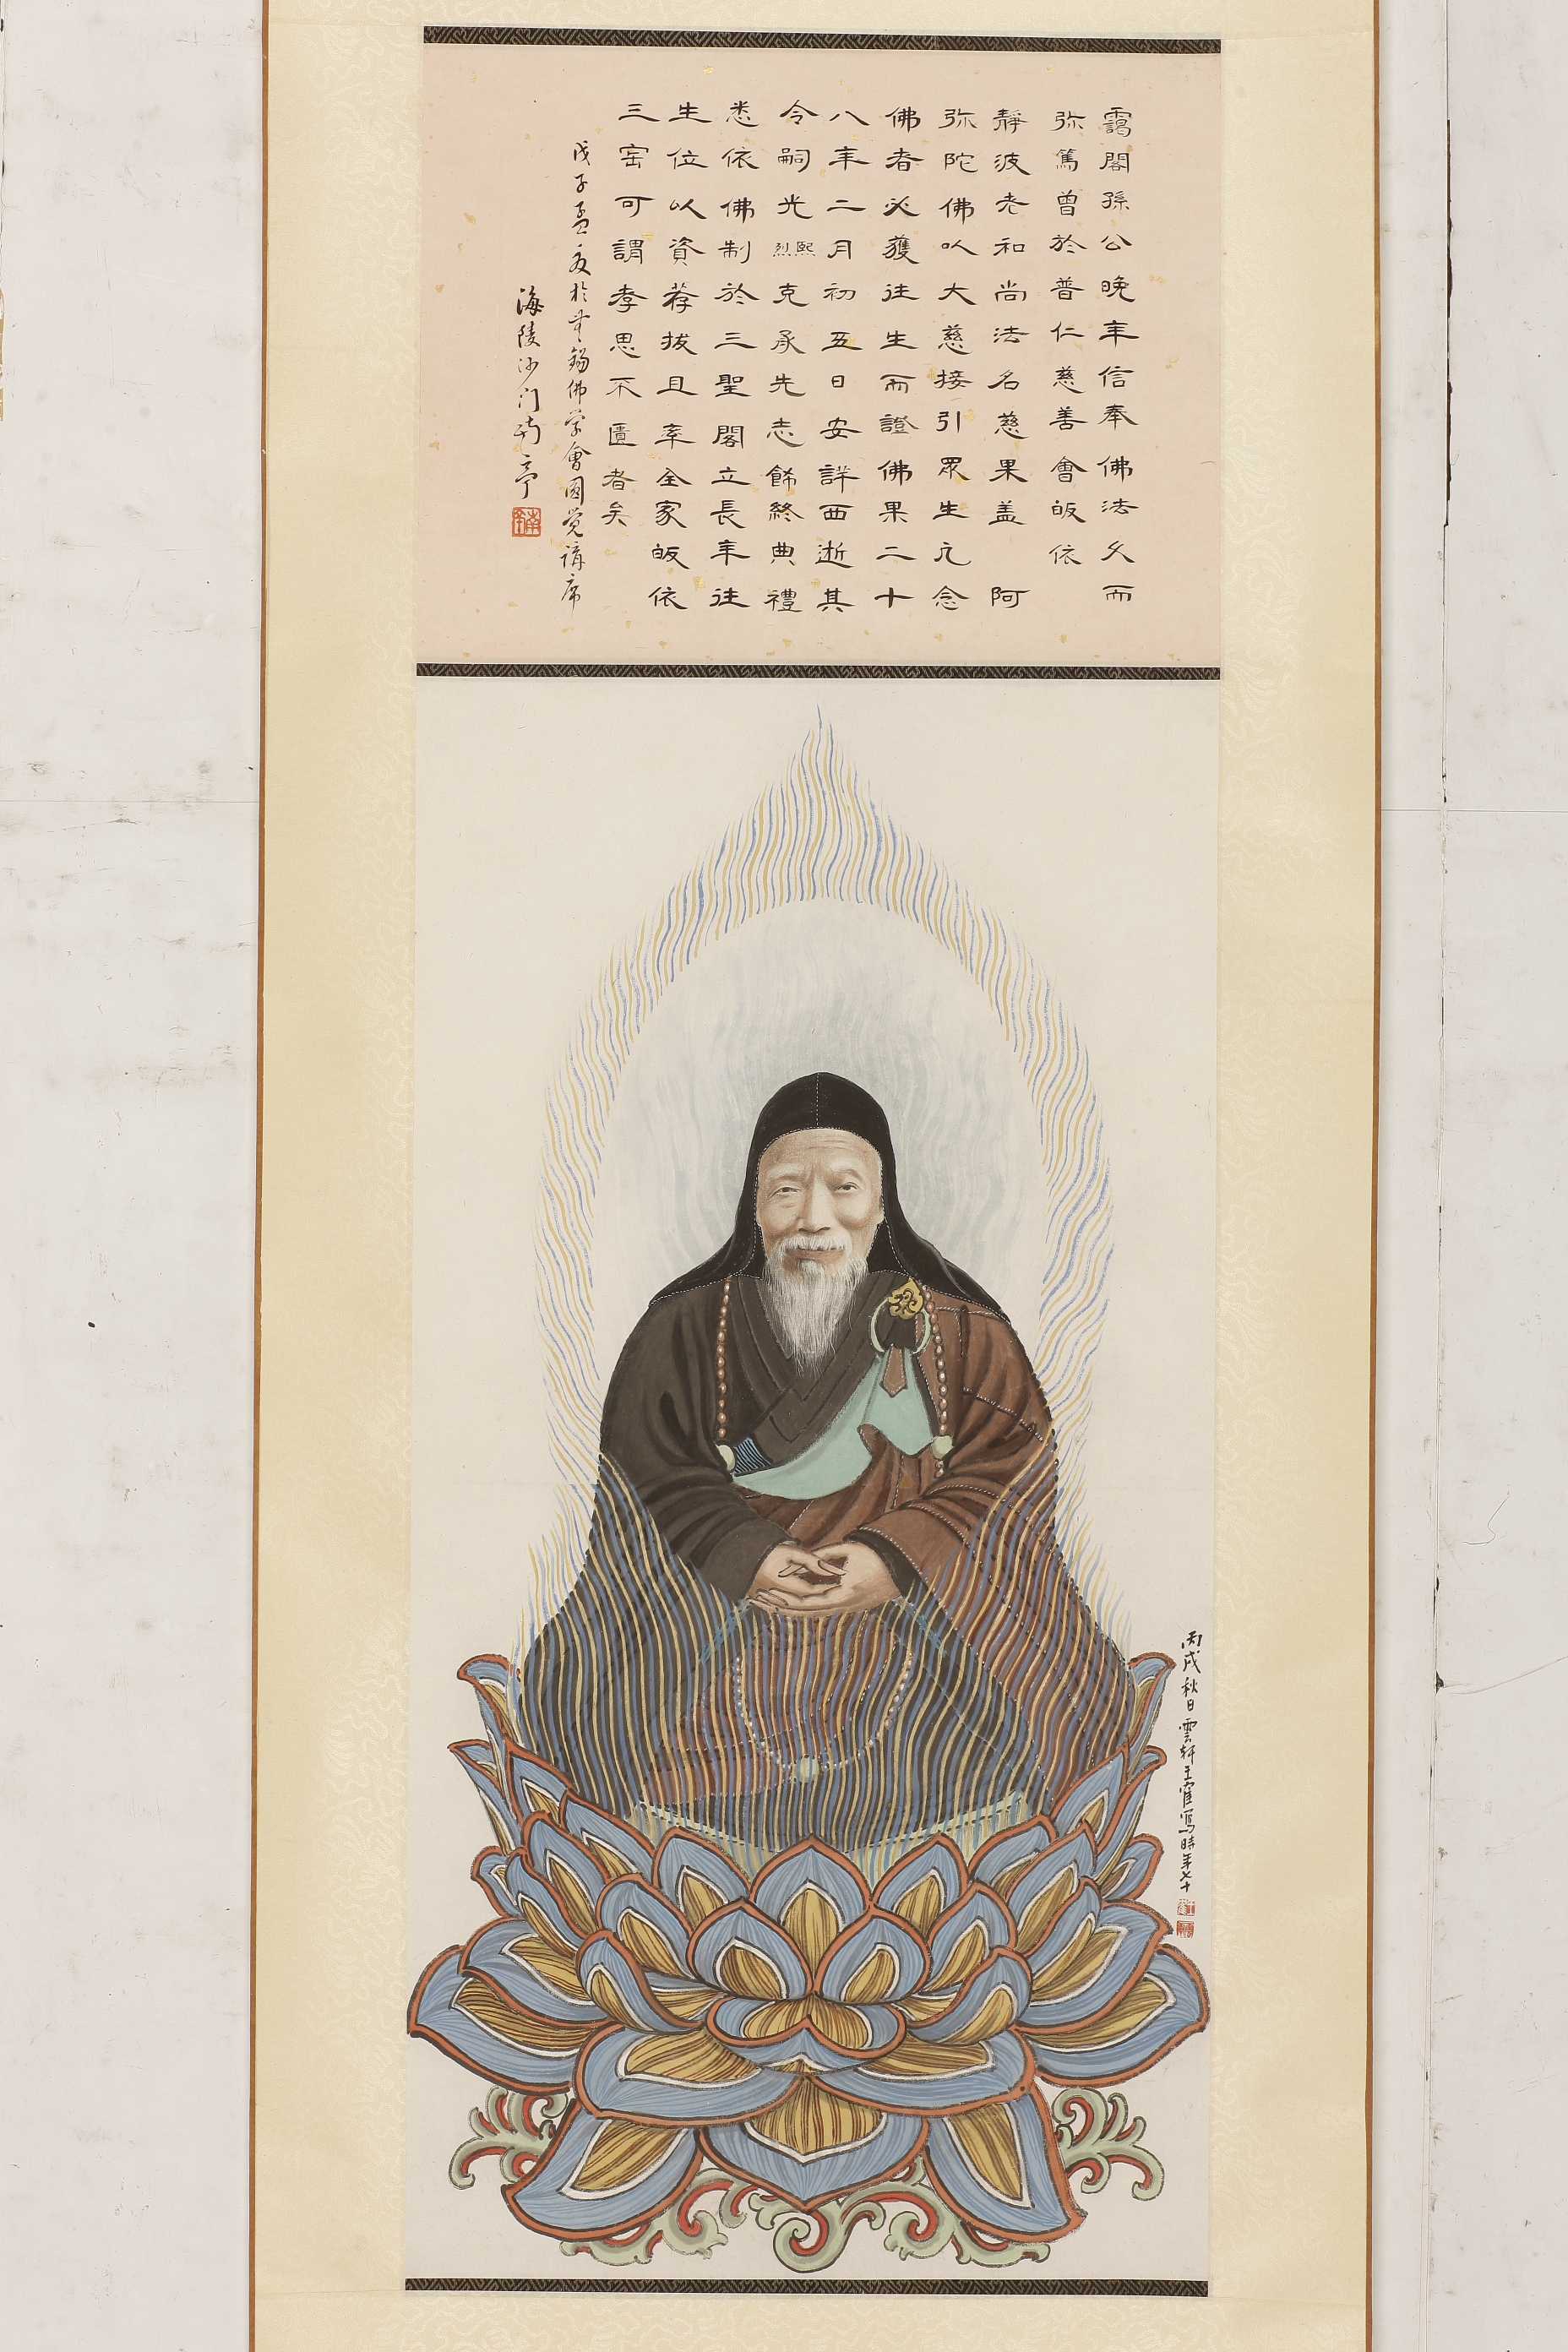 靄閣孫公晚年信奉佛法久而
弥篤曾於普仁慈善會皈依
靜波老和尚法名慈果盖 阿
弥陀佛以大慈接引眾生凡念
佛者必獲往生而證佛果二十
八年二月初五日安詳西逝其
令嗣光熙烈克承先志飾終典禮
悉依佛制於三聖閣立長年往
生位以資荐拔且率全家皈依
三寳可謂孝思不匱者矣
戊子孟夏於無錫佛学會圓覺講席
海陵沙门南亭
南亭
丙戌秋日雲軒王寉寫時年七十